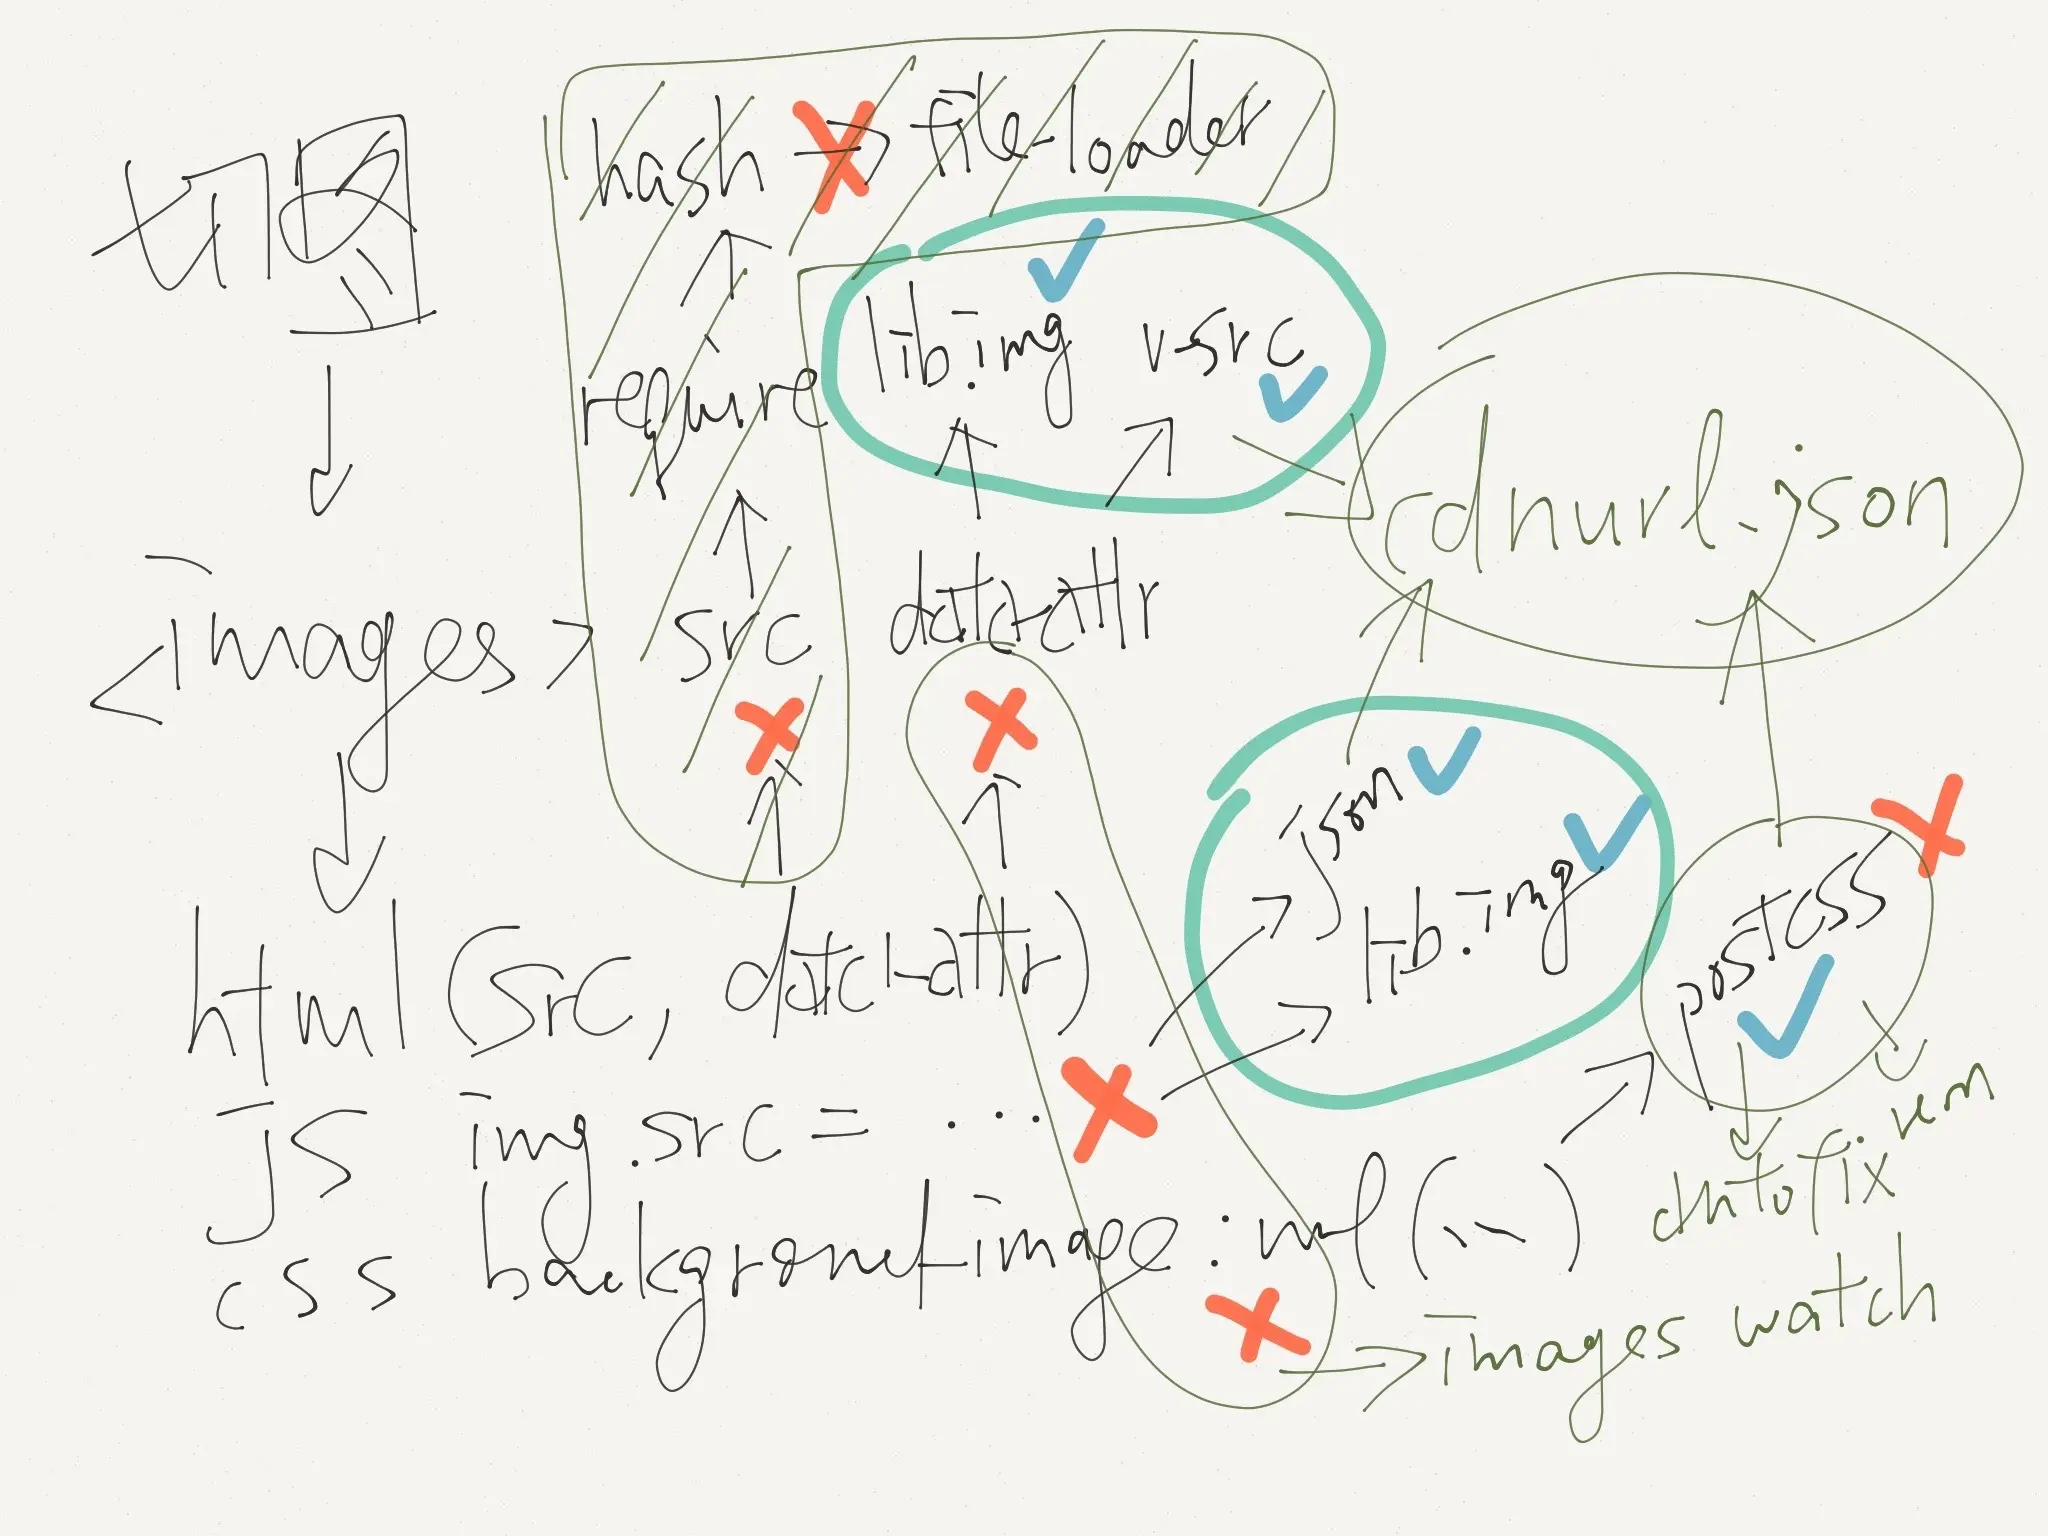 切图
hash → file-loader
require
lib.img v-src
cdnurl.json
<images>
src
data-attr
json
lib.img
postcss
html (src, data-attr)
js img.src = ...
rem
autofix
css background-image: url(...)
images watch